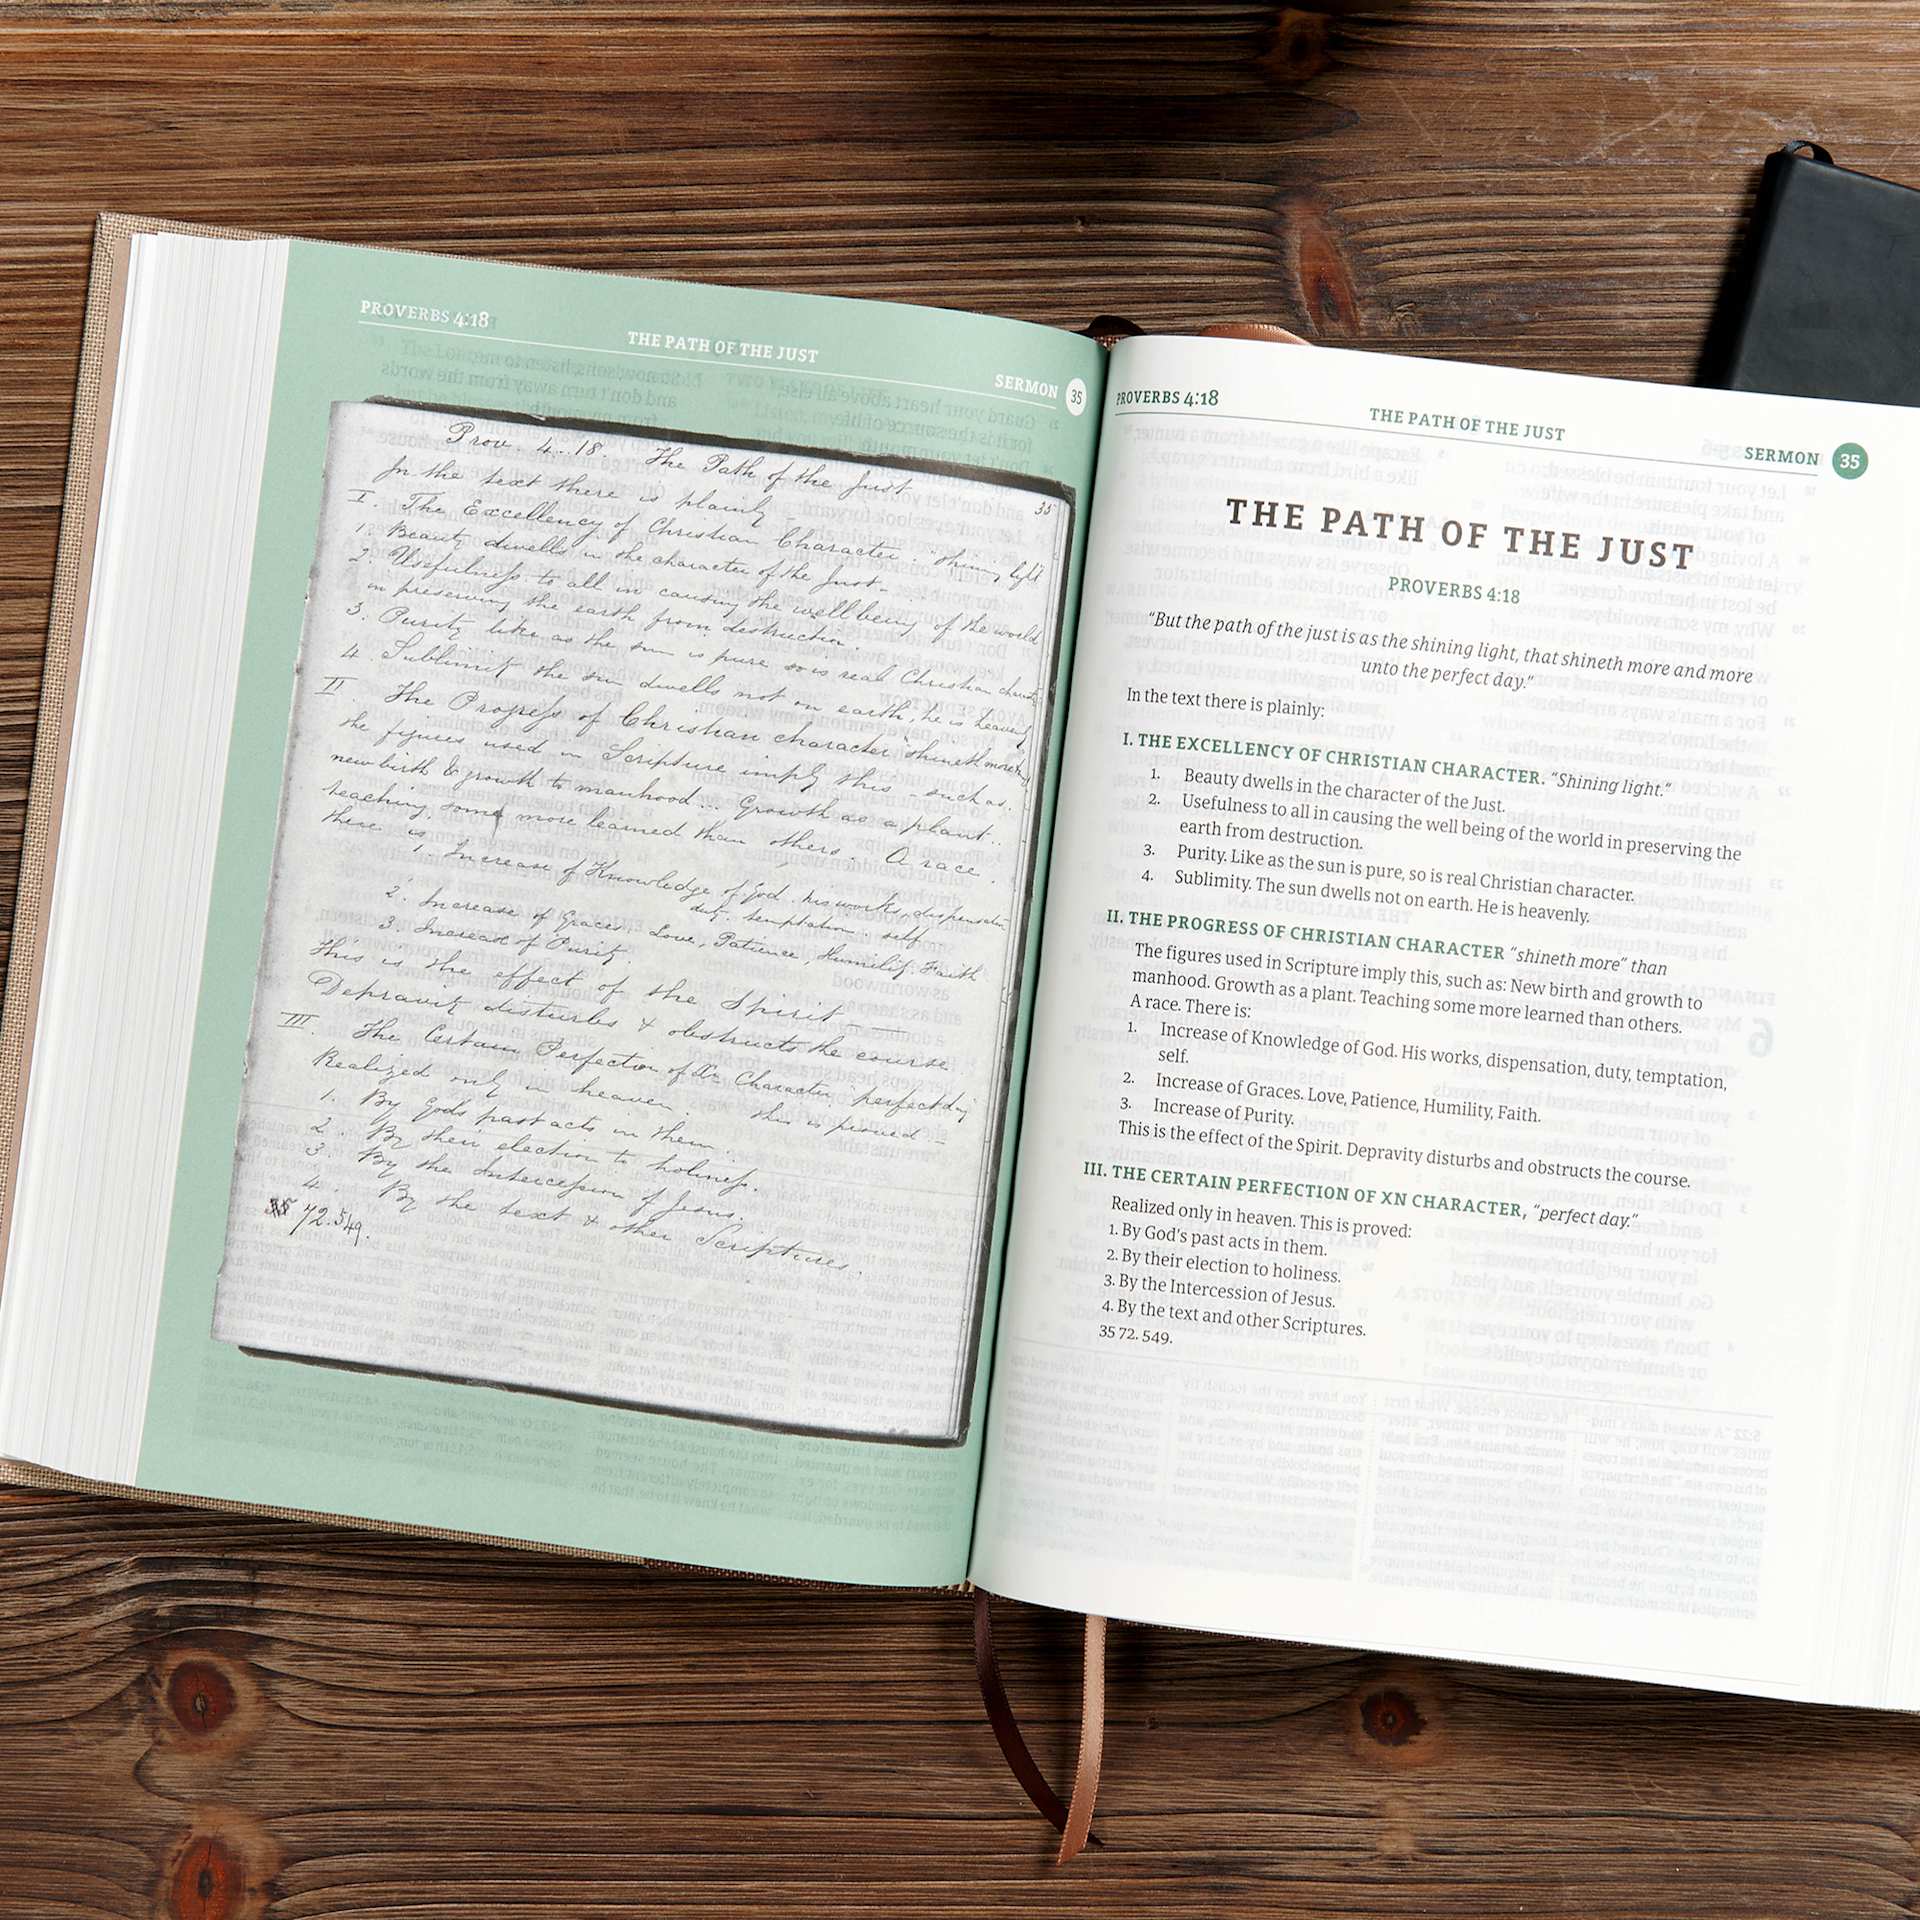 PROVERBS 4:18
THE PATH OF THE JUST
SERMON 35
Prov. 4..18. The Path of the Just
35
In the text there is plainly
I. The Excellency of Christian Character. shining light
1. Beauty dwells in the character of the Just.
2. Usefulness to all in causing the well being of the world
in preserving the earth from destruction.
3. Purity like as the sun is pure so is real Christian
4. Sublimity the sun dwells not on earth, he is heavenly
II The Progress of Christian character "shineth more
the figures used in Scripture imply this, such as.
new birth & growth to manhood. Growth as a plant..
teaching some more learned than others. A race.
there is
1. Increase of Knowledge of God. his works, dispensation
duty. temptation. self
2. Increase of Graces, Love, Patience, Humility, Faith
3. Increase of Purity.
This is the effect of the Spirit
Depravity disturbs & obstructs the course.
III. The Certain Perfection of Xn Character, perfect day
Realized only in heaven. This is proved
1. By Gods past acts in them.
2. By their election to holiness.
3. By the Intercession of Jesus.
4. By the text & other Scriptures.
72.549.
PROVERBS 4:18
THE PATH OF THE JUST
SERMON 35
THE PATH OF THE JUST
PROVERBS 4:18
“But the path of the just is as the shining light, that shineth more and more
unto the perfect day.”
In the text there is plainly:
I. THE EXCELLENCY OF CHRISTIAN CHARACTER. “Shining light.”
1. Beauty dwells in the character of the Just.
2. Usefulness to all in causing the well being of the world in preserving the
earth from destruction.
3. Purity. Like as the sun is pure, so is real Christian character.
4. Sublimity. The sun dwells not on earth. He is heavenly.
II. THE PROGRESS OF CHRISTIAN CHARACTER “shineth more” than
The figures used in Scripture imply this, such as: New birth and growth to
manhood. Growth as a plant. Teaching some more learned than others.
A race. There is:
1. Increase of Knowledge of God. His works, dispensation, duty, temptation,
self.
2. Increase of Graces. Love, Patience, Humility, Faith.
3. Increase of Purity.
This is the effect of the Spirit. Depravity disturbs and obstructs the course.
III. THE CERTAIN PERFECTION OF XN CHARACTER, “perfect day.”
Realized only in heaven. This is proved:
1. By God's past acts in them.
2. By their election to holiness.
3. By the Intercession of Jesus.
4. By the text and other Scriptures.
35 72. 549.